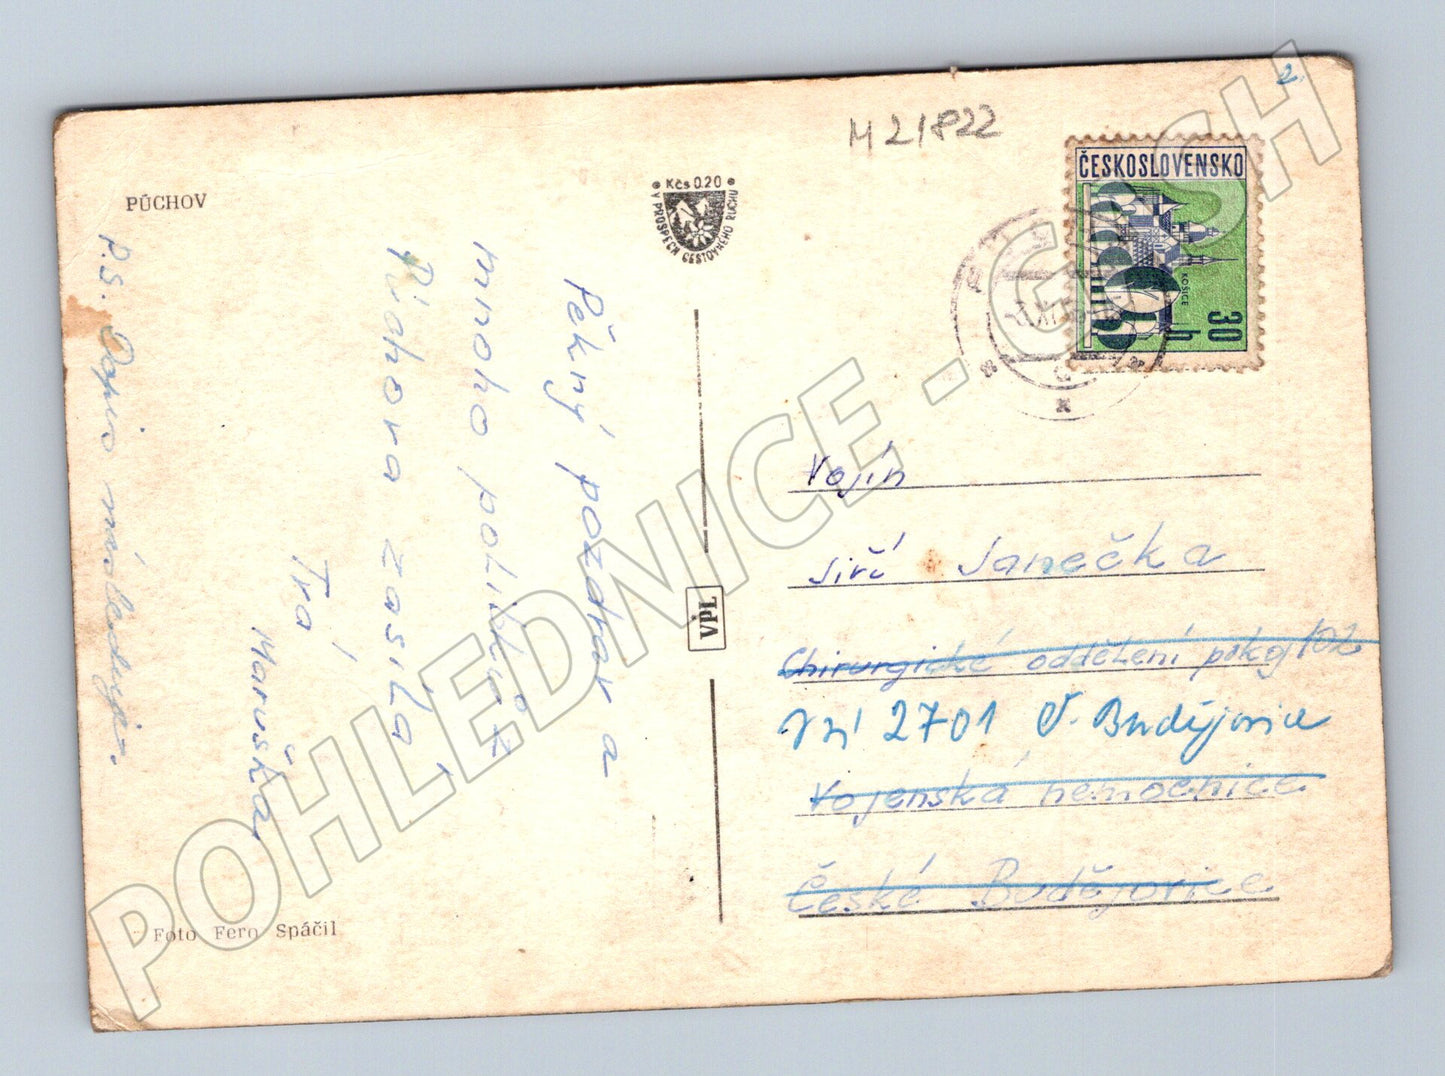 M 21822
2
PÚCHOV
Kčs 0.20
V PROSPECH CESTOVNÉHO RUCHU
ČESKOSLOVENSKO
KOŠICE
30 h
Pěkný pozdrav a
mnoho polibků z
Púchova zasílá
Tvá
Maruška
P.S. Dopis následuje.
VPL
Vojín
Jiří Janečka
Chirurgické oddělení pokoj 102
VÚ 2701 Č. Budějovice
Vojenská nemocnice
České Budějovice
Foto Fero Spáčil
POHLEDNICE - CZECH